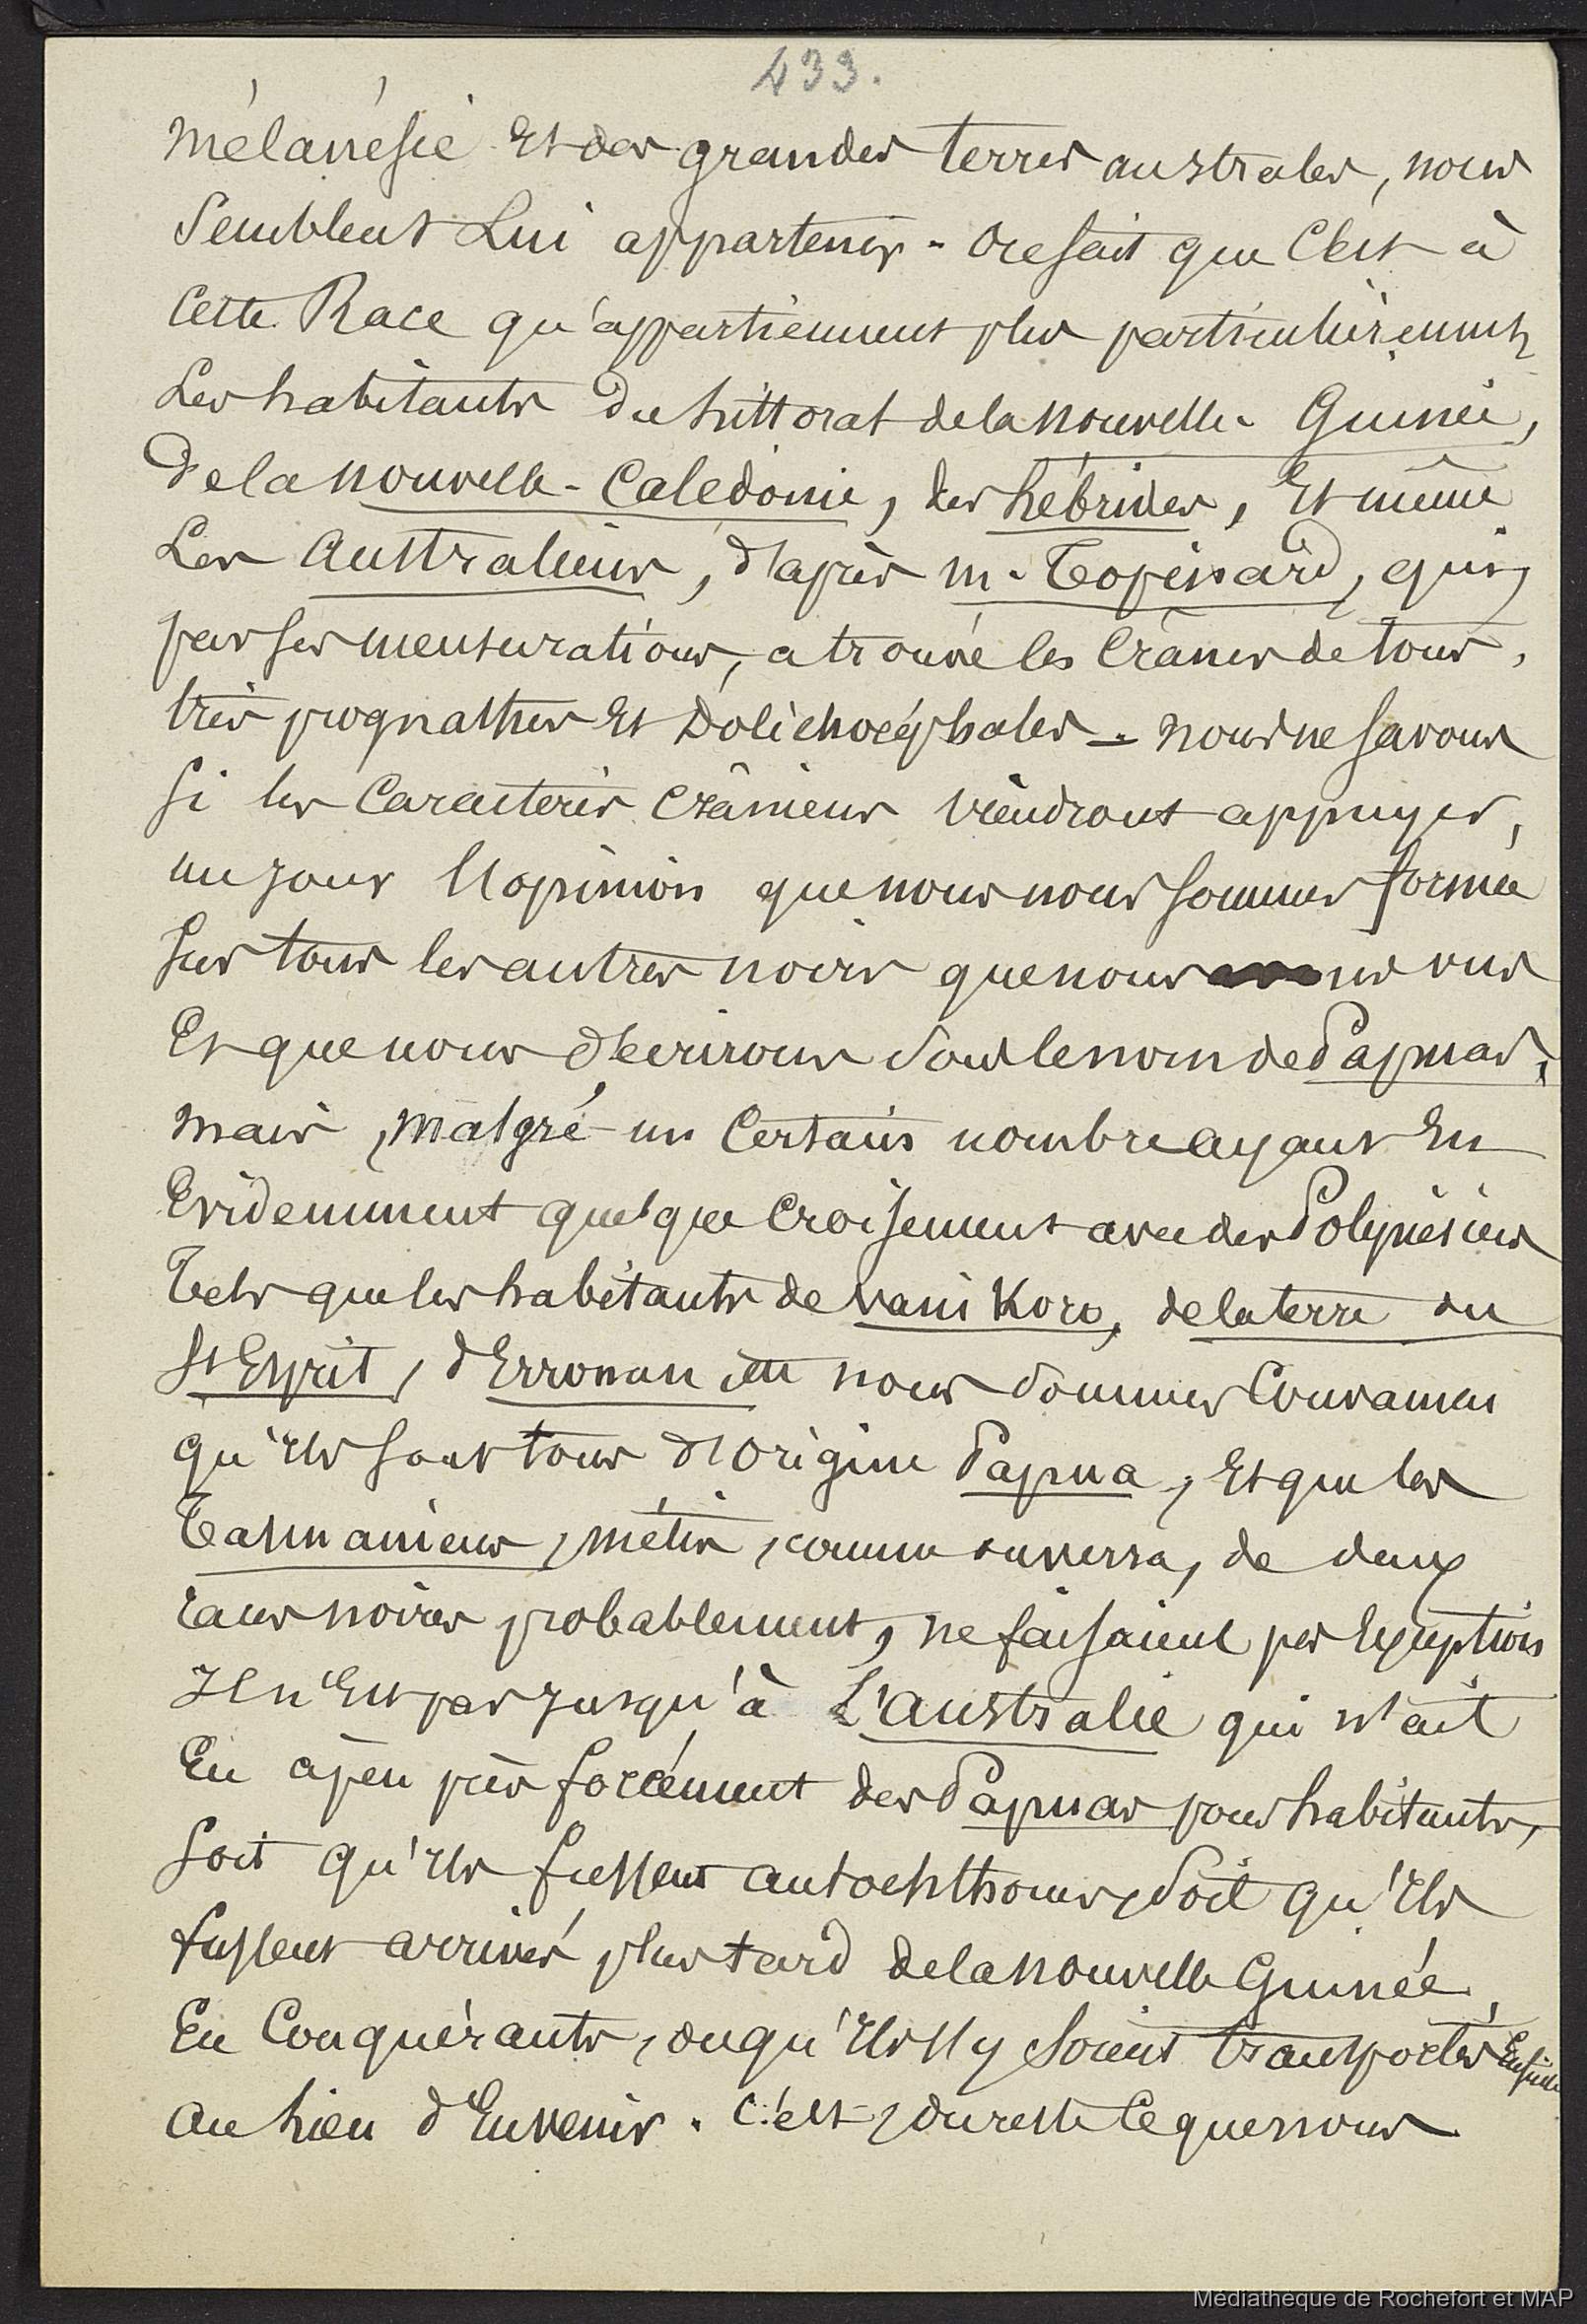 433.
Mélanésie et des grandes terres australes, nous
semblent lui appartenir - on sait que c'est à
cette Race qu'appartiennent plus particulièrement
les habitants du littoral de la nouvelle-Guinée,
de la nouvelle-Calédonie, des hébrides, et même
les australiens, d'après m. Topinard, qui,
par ses mensurations, a trouvé les crânes de tous,
très prognathes et Dolichocéphales - nous ne savons
si les caractères crâniens viendront appuyer,
un jour l'opinion que nous nous sommes formée
sur tous les autres noirs que nous avons vus
Et que nous décrirons sous le nom de Papuas;
mais, malgré un certain nombre ayant eu
Evidemment quelque croisement avec des Polynésiens
Tels que les habitants de vanikoro, de la terre du
St Esprit, d'Erronan etc nous sommes convaincu
qu'ils sont tous d'origine Papua, et que les
Tasmaniens, métis, comme on verra, de deux
races noires probablement, ne faisaient pas exception
Il n'est pas jusqu'à L'australie qui n'ait
Eu à peu près forcément des Papuas pour habitants,
soit qu'ils fussent autochthones, soit qu'ils
fussent arrivés plus tard de la nouvelle Guinée,
En Conquérants, ou qu'ils s'y soient transportés Ensuite
au lieu d'En venir. C'est, du reste ce que nous
Médiathèque de Rochefort et MAP